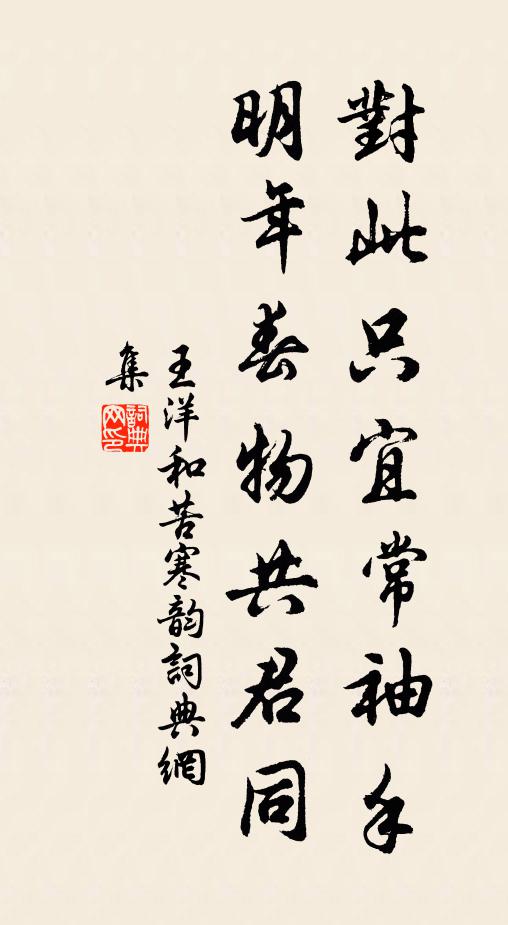 對此只宜常袖手
明年春物共君同
王洋和苦寒韵詞典網
集
詞典
网印